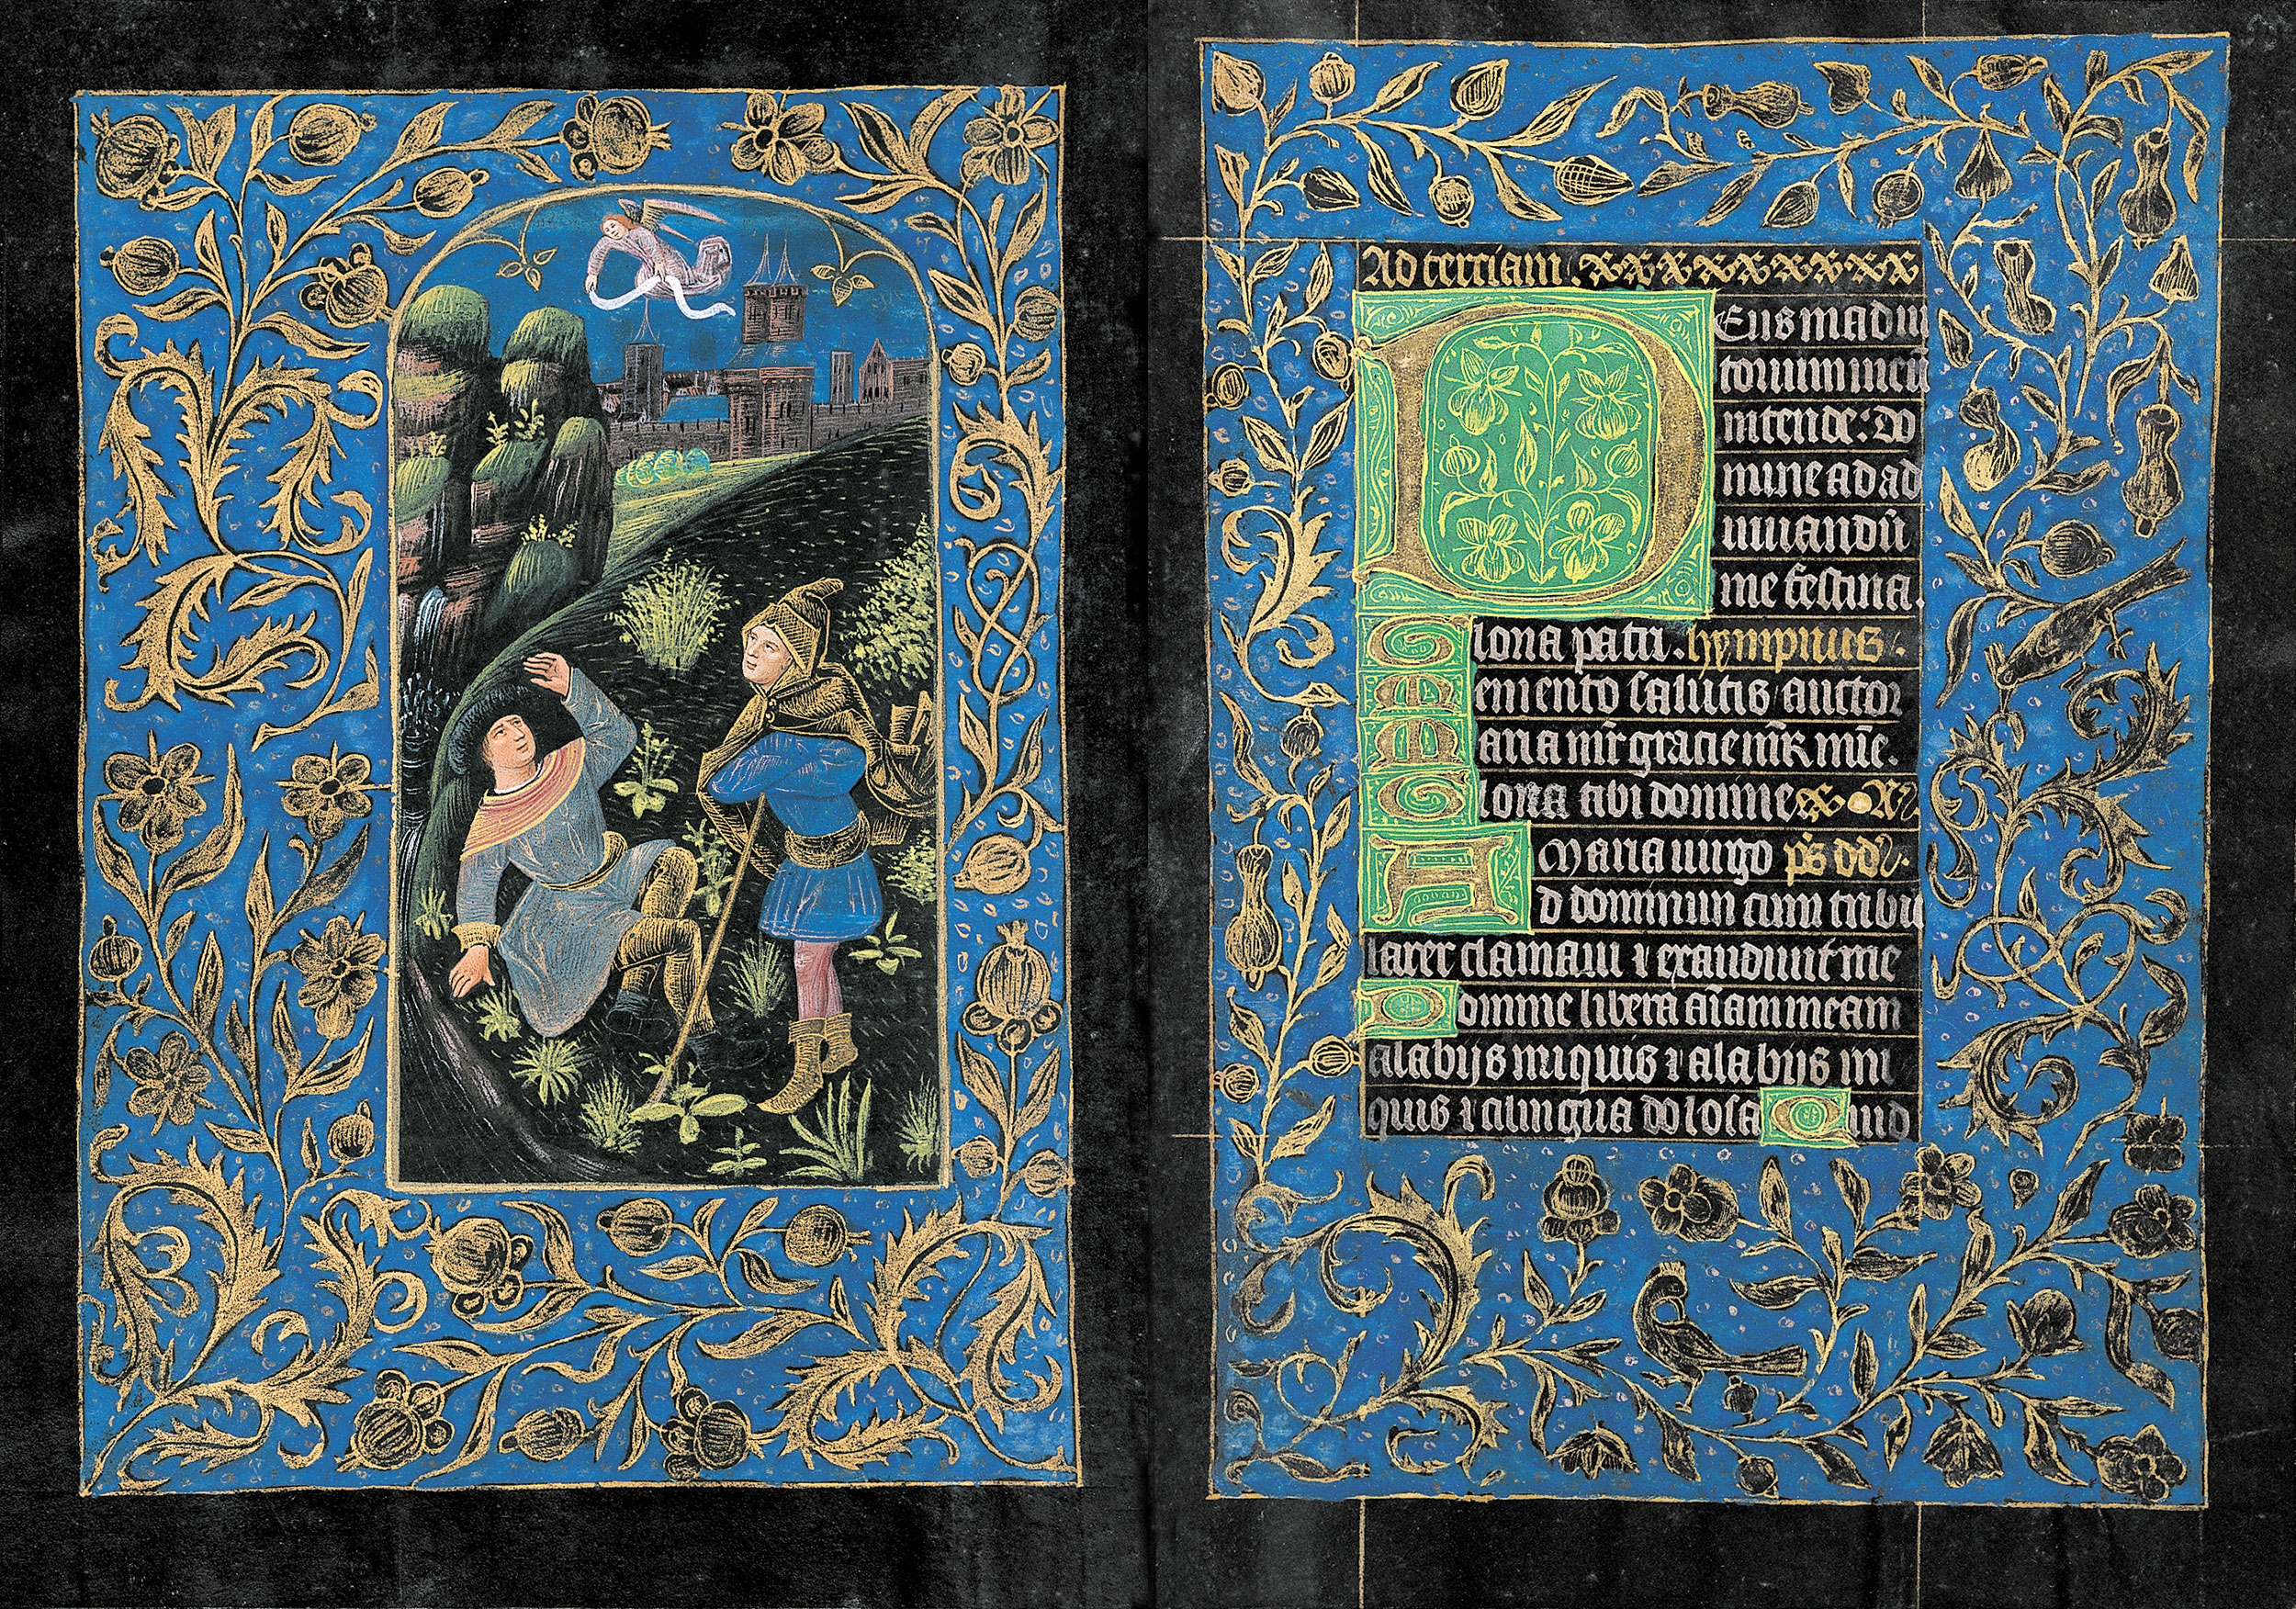 Ad terciam.
Deus in adiu
torium meū
intende: do
mine ad ad
iuuandū
me festina.
Gloria patri. hympnus.
Memento salutis auctor
Maria mr̄ gracie mr̄ mīe.
Gloria tibi domine añ
Maria uirgo p̄s dd̄.
Ad dominum cum tribu
larer clamaui ⁊ exaudiuit me
Domine libera aīam meam
a labijs iniquis ⁊ a labijs ini
quis ⁊ a lingua dolosa Quid